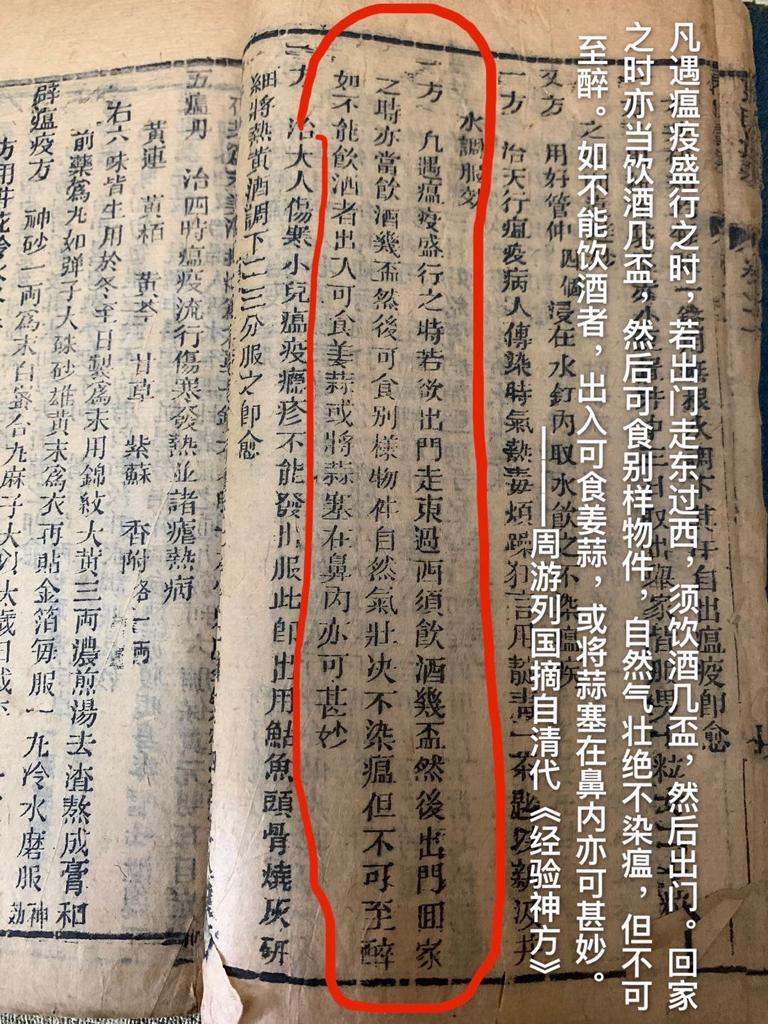 凡遇瘟疫盛行之时，若出门走东过西，须饮酒几盃，然后出门。回家
之时亦当饮酒几盃，然后可食别样物件，自然气壮绝不染瘟，但不可
至醉。如不能饮酒者，出入可食姜蒜，或将蒜塞在鼻内亦可甚妙。
——周游列国摘自清代《经验神方》
又方 用好管仲四個浸在水缸內取水飲之不染瘟疾
一方 治天行瘟疫病人傳染時氣熱毒煩躁狂言用靛青一茶匙以新汲井
水調服効
一方 凡遇瘟疫盛行之時若欲出門走東過西須飲酒幾盃然後出門囬家
之時亦當飲酒幾盃然後可食别樣物件自然氣壯决不染瘟但不可至醉
如不能飲酒者出入可食姜蒜或將蒜塞在鼻內亦可甚妙
一方 治大人傷寒小兒瘟疫癮疹不能發出服此即出用鮎魚頭骨燒灰研
細將熱黄酒調下二三分服之即愈
五瘟丹 治四時瘟疫流行傷寒發熱並諸瘧熱病
黄連 黄栢 黄芩 甘草 紫蘇 香附 各一両
右六味皆生用於冬至日製爲末用錦紋大黄三両濃煎湯去渣熬成膏和
前藥爲丸如彈子大硃砂雄黄末爲衣再貼金箔每服一丸冷水磨服神効
辟瘟疫方 神砂一両爲末白蜜合丸麻子大以太歲日或